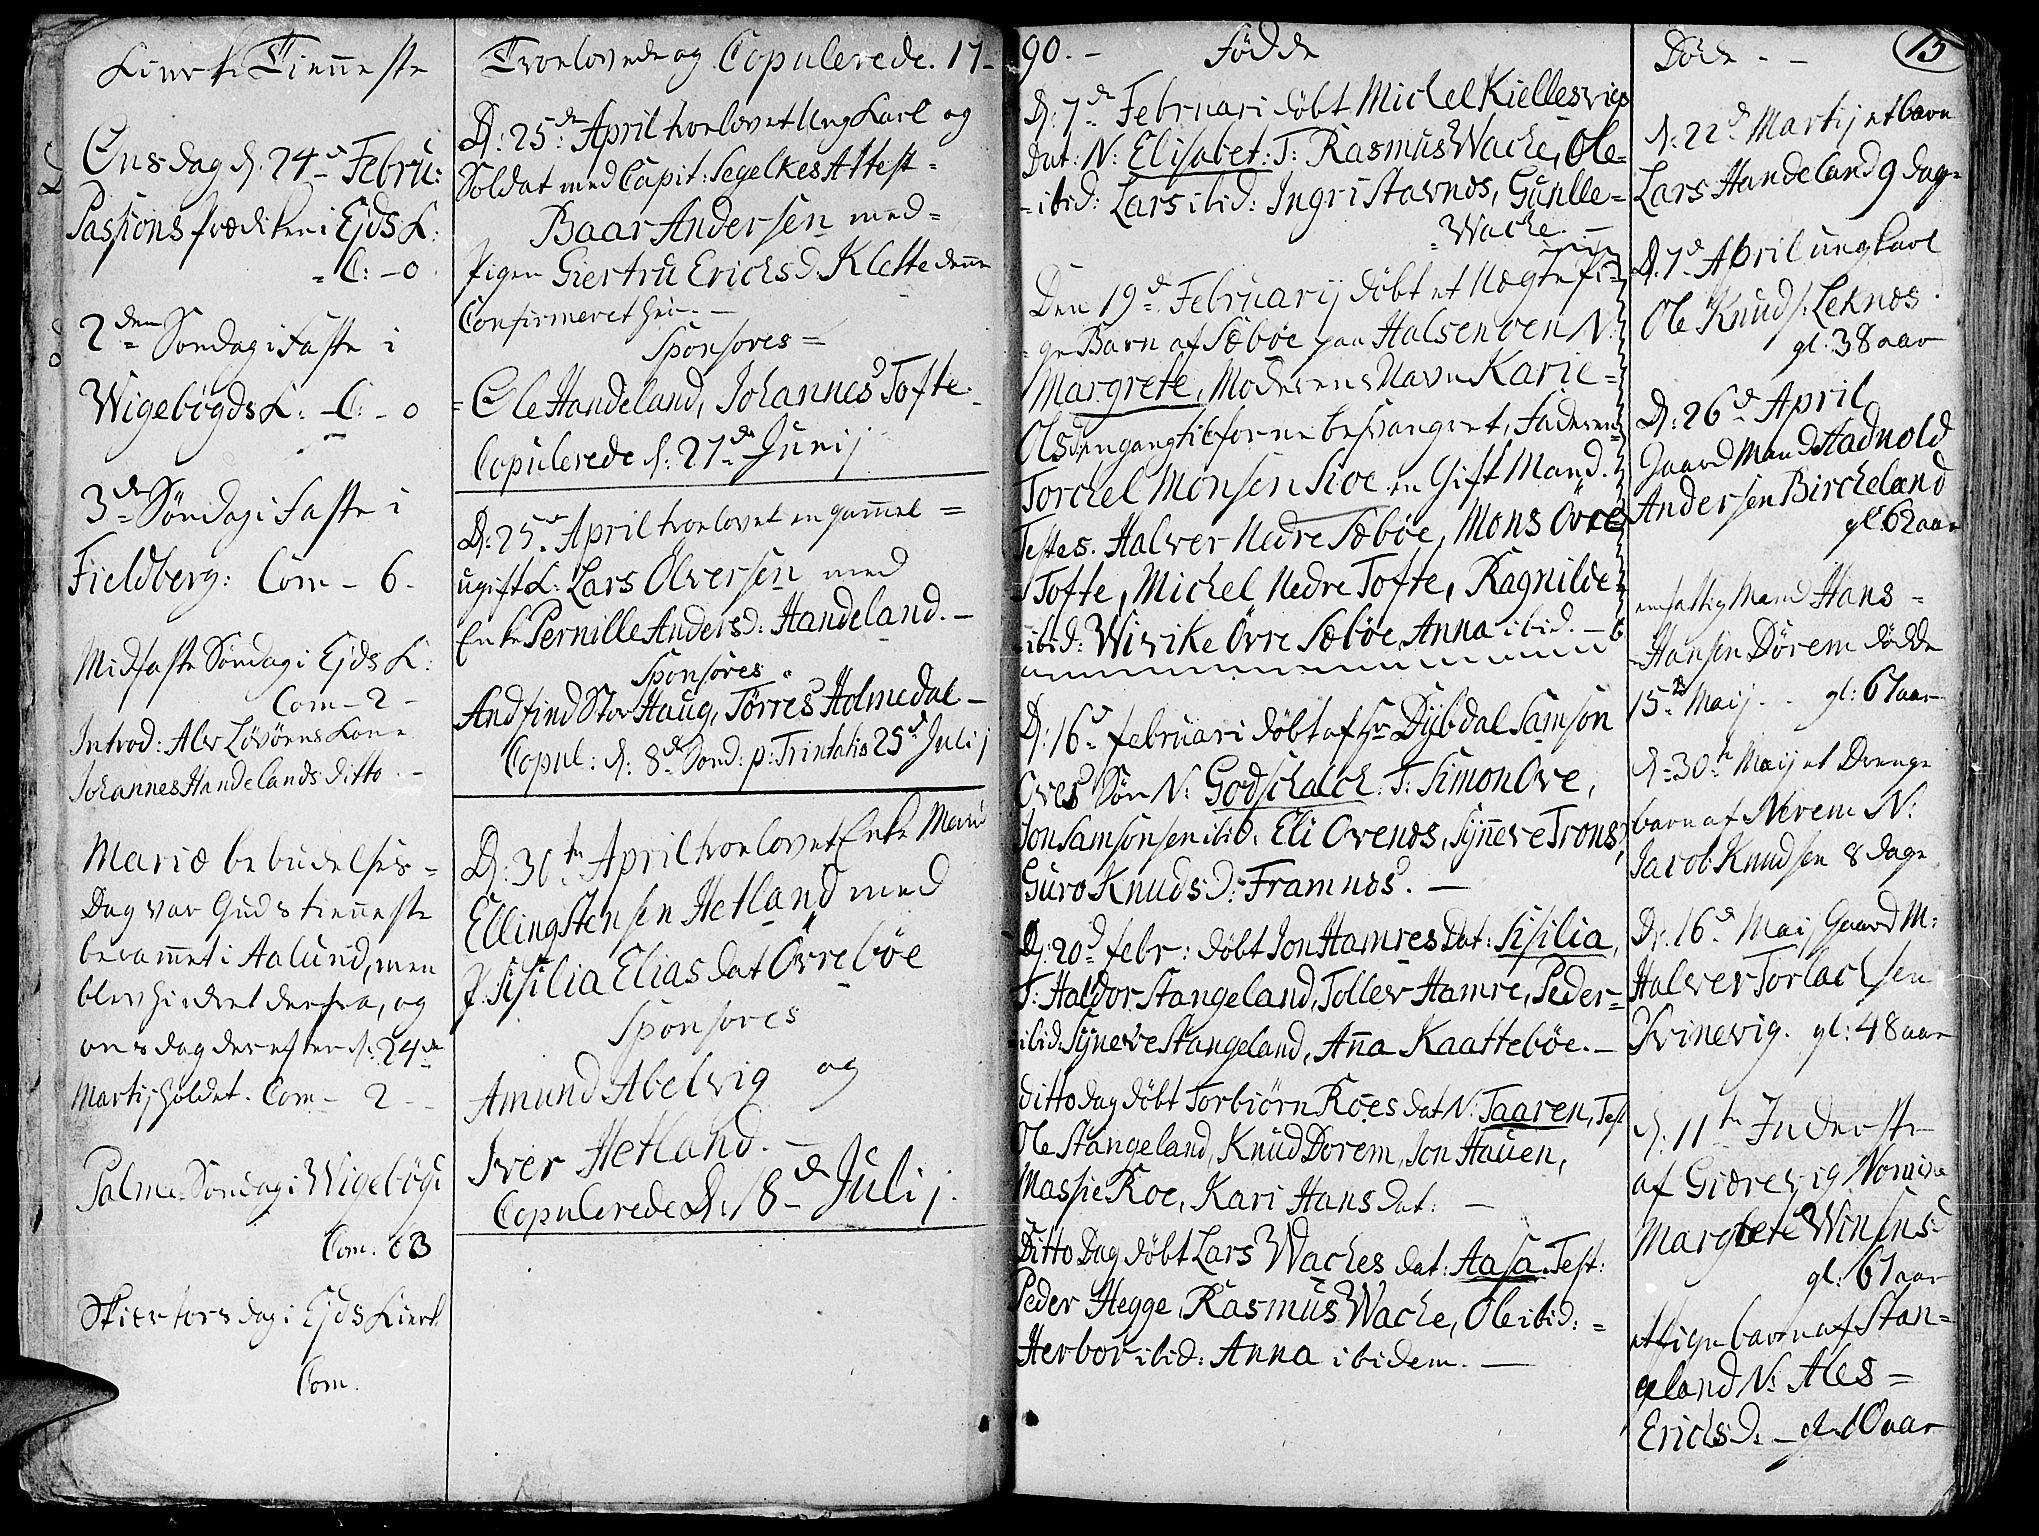 Kirke Tienneste
Onsdag d: 24de Febru:
Passions prædiken i Ejds K:
= C: - 0
2den Søndag i Faste i
Wigebøgds K: - C: - 0
3de Søndag i Faste i
Fieldberg: Com - 6 -
Midfaste Søndag i Ejds K:
Com - 2 -
Introd: Alv Lövörns Kone
Johannes Handelands ditto. -
Mariæ bebudelses =
Dag var Guds tienneste
berammet i Aalund, men
blev hindret derfra, og
onsdag derefter d: 24de
Martij holdet. Com - 2 -
Palme Søndag i Wigebögd
Com. 63
Skiertorsdag i Ejds Kierk
Com.
Troelovede og Copulerede. 17-
D: 25de April troelovet Ung Karl og
Soldat med Capit: Segelkes Attest =
Baar Andersen med =
Pigen Giertru Erichsd. Klette denne
Confirmeret her. -
Sponsores =
= Ole Handeland, Johannes Tofte.
Copulerede d: 27de Junij
D: 25de April troelovet en gammel =
ugift K: Lars Olversen med
Enke Pernille Andersd: Handeland. -
Sponsores
Andfind Stor Haug, Törres Holmedal -
Copul: d: 8de Sond: p: Trinitatis 25de Julij
D: 30te April troelovet Enke Mand
Elling Stensen Hetland med
P. Sisilia Elias dat Övrebøe
Sponsores
Amund Abelvig og
Iver Hetland. -
Copulerede d: 18de Julij.
90. - Fødde
D: 7de Februari døbt Michel Kiellesvigs
Dat: N: Elisabet: T: Rasmus Wache, Ole =
= ibid: Lars ibid: Ingri Stavnæs, Gunlle =
= Wache. -
Den 19de Februarij døbt et Uægte Pi =
ge Barn af Sæbøe paa Halsenöen N:
Margrete, Moderens Navn Karie =
Olsd: engang tilforne besvangret, Faderen
Torchel Monsen Sioe en Gift Mand.
Testes. Halver Nedre Sæbøe, Mons Övre
Tofte, Michel Nedre Tofte, Ragnilde
ibid: Wivike Övre Sæbøe Anna ibid. -
D: 16de februari døbt af Hr Dÿbdal Samson
Oves Søn N: Godschalch: T: Simon Ove,
Jon Samsonsen ibid. Eli Ovenæs, Sÿnneve Trons,
Guro Knudsd: Framnæs. -
D: 20de febr: døbt Jon Hamres Dat: Sisilia,
T: Haldor Stangeland, Tollev Hamre, Peder =
ibid Sÿneve Stangeland, Anna Kaattebøe. -
ditto dag døbt Torbiørn Røes dat N: Taaren, Test
Ole Stangeland, Knud Dorem, Jon Hauen,
Massie Roe, Kari Hans Dat: -
Ditto Dag døbt Lars Waches Dat: Aasa. Test:
Peder Hegge, Rasmus Wache, Ole ibid: =
Herbor ibid: Anna ibidem. -
Døde - - 15
d: 22de Martij et barn
Lars Handeland 9 dag =
D. 7de April ung Karl
Ole Knuds: Leknæs.
gl: 38 aar
D: 26de April
Gaard Mand Hadnold
Andersen Bircheland
gl: 62 aar
en fattig Mand Hans =
Hansen Dörem døde
15de Maij - - gl: 67 aar
d: 30te Maij et Drenge
barn af Nerem N:
Jacob Knudsen 8 dage
D: 16de Maij Gaard M:
Halver Torlachsen
Svinevig. gl: 48 aar
d: 11te Inderste
af Giærevig Nomine
Margrete Winsensd
gl: 67 aar
et pige barn af Stan =
geland N: Ales =
Erichsd. - gl. 10 aar